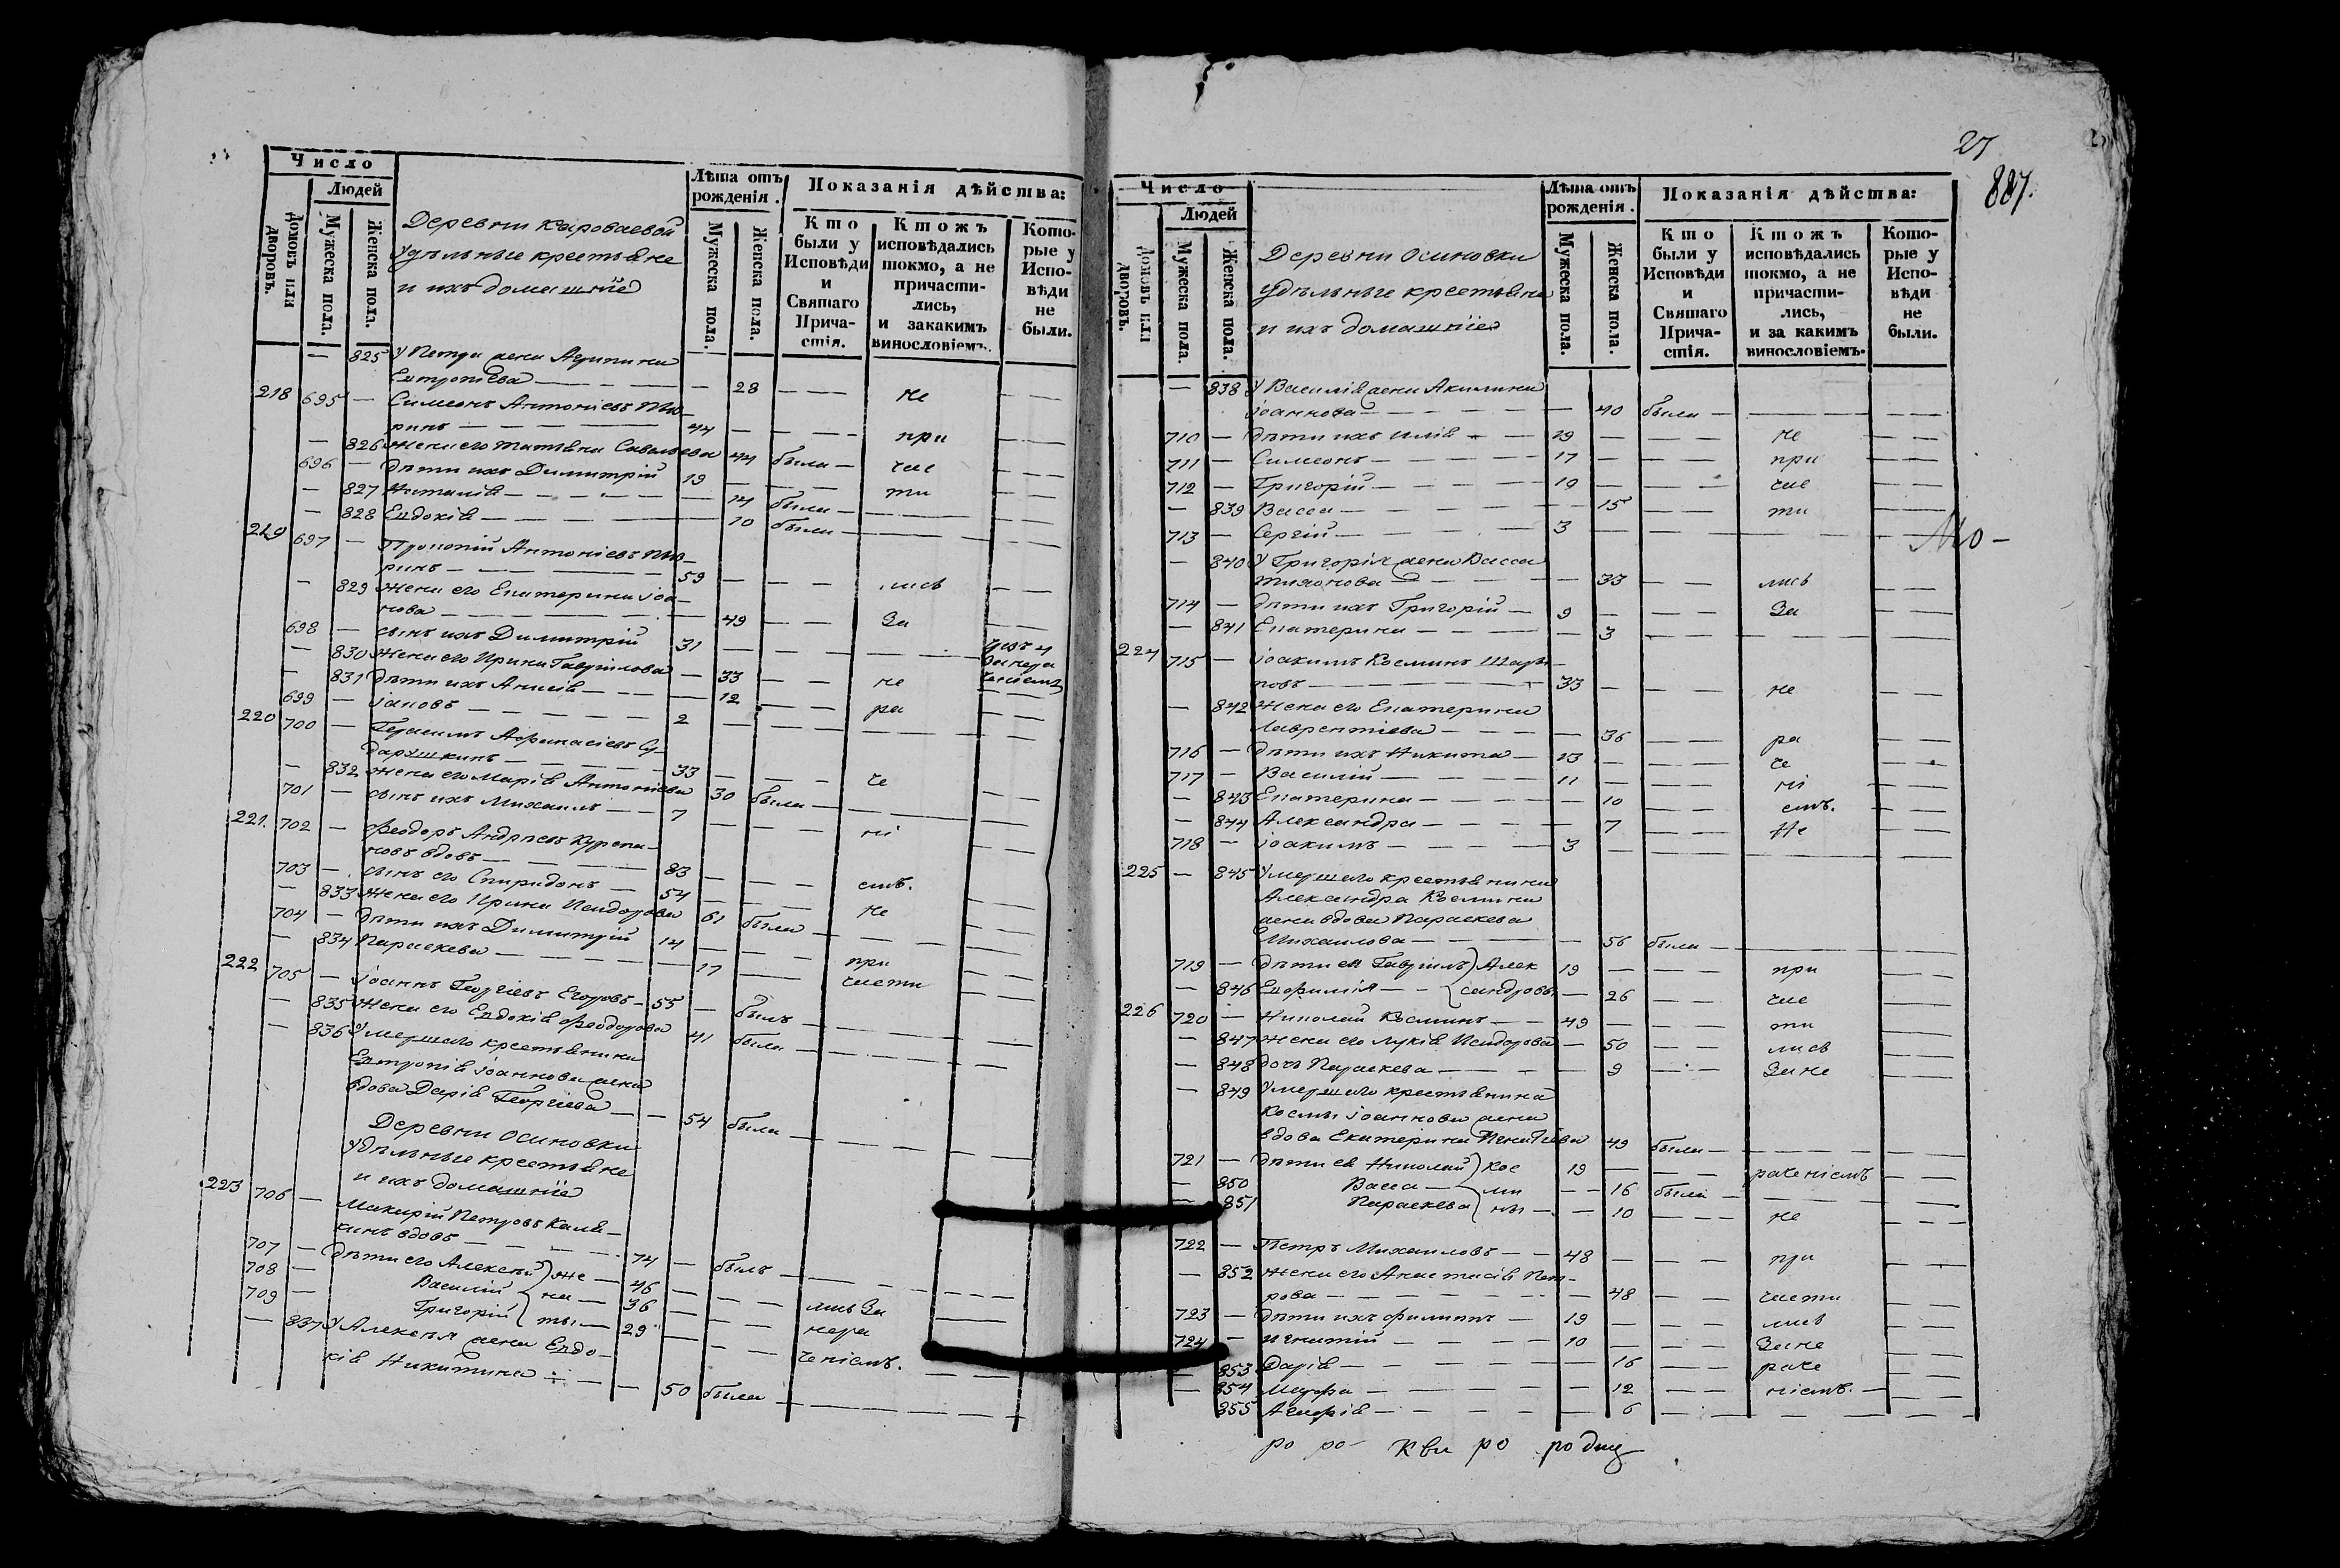 Число
Людей
Домовъ или дворовъ.
Мужеска пола.
Женска пола.
Деревни Караваевой
удѣльные крестьяне
и ихъ домашніе
Лѣта отъ рожденія.
Мужеска пола.
Женска пола.
Показанія дѣйства:
Кто были у Исповѣди и Святаго Причастія.
Ктожъ исповѣдались токмо, а не причастились, и закакимъ винословіемъ.
Которые у Исповѣди не были.
— 825 У Петра жена Агрипина
Евтропіева — — 28 — — не — —
218 695 — Симеонъ Антоніевъ
ринъ — — 44 — — — при — —
— 826 Жена его Татьяна Савельева 44 была — час
696 — дѣти ихъ Димитрій 19 — — — ти
— 827 Наталія — — 14 была —
— 828 Евдокія — — 10 была —
219 697 — Прокопій Антоніевъ
ринъ — 59 — — — лись — —
— 829 Жена его Екатерина Іоа-
нова — — 49 — — за
698 — сынъ ихъ Димитрій 31 — — —
— 830 Жена его Ирина Гавріилова — 33 — — не
— 831 дѣти ихъ Анисія — — 12 — — ра
699 — Іаковъ — 2 — — —
220 700 — Герасимъ Афанасіевъ Су-
дарушкинъ — 33 — — — че
— 832 Жена его Марія Антоніева 30 была —
701 — сынъ ихъ Михаилъ — 7 — — — ні
221. 702 — Феодоръ Андреевъ Курепа-
новъ вдовъ — 83 — — — емъ.
703 — сынъ его Спиридонъ — 54 — — — Не
— 833 Жена его Ирина Исидорова 61 была —
704 — дѣти ихъ Димитрій 14 — — — при
— 834 Параскева — — 17 — — части
222 705 — Іоаннъ Георгіевъ Егоровъ — 55 — былъ —
— 835 Жена его Евдокія Феодорова 41 была —
— 836 Умершаго крестьянина
Евтропія Іоаннова жена
вдова Дарія Георгіева — — 54 была —
Деревни Осиновки
удѣльные крестьяне
и ихъ домашніе
223 706 — Макарій Петровъ Каля-
кинъ вдовъ — 74 — былъ —
707 — дѣти его Алексѣй же — 46 — — —
708 — Василій на — 36 — — — лись за
709 — Григорій ты — 29 — — — нера
— 837 У Алексѣя жена Евдо-
кія Никитина — — 50 была —
ченіемъ.
27
887.
Число
Людей
Домовъ или дворовъ.
Мужеска пола.
Женска пола.
Деревни Осиновки
удѣльные крестьяне
и ихъ домашніе
Лѣта отъ рожденія.
Мужеска пола.
Женска пола.
Показанія дѣйства:
Кто были у Исповѣди и Святаго Причастія.
Ктожъ исповѣдались токмо, а не причастились, и за какимъ винословіемъ.
Которые у Исповѣди не были.
— 838 У Василія жена Акилина
Іоаннова — — 40 была —
710 — дѣти ихъ Илія — 19 — — — не
711 — Симеонъ — 17 — — — при
712 — Григорій — 19 — — — час
— 839 Васса — — 15 — — ти
713 — Сергій — 3 — — —
— 840 У Григорія жена Васса
Тихонова — — 33 — — лись
714 — дѣти ихъ Григорій — 9 — — — за
— 841 Екатерина — — 3 — — —
224 715 — Іоакимъ Косминъ Шара-
повъ — 33 — — — не
— 842 Жена его Екатерина
Лаврентіева — — 36 — — ра
716 — дѣти ихъ Никита — 13 — — — че
717 — Василій — 11 — — — ні
— 843 Екатерина — — 10 — — емъ.
— 844 Александра — — 7 — — Не
718 — Іоакимъ — 3 — — —
225 — 845 Умершаго крестьянина
Александра Космина
жена вдова Параскева
Михаилова — — 56 была —
719 — дѣти ея Гавріилъ Алек 19 — — — при
— 846 Евфимія — сандровы — 26 — — час
226 720 — Николай Косминъ — 49 — — — ти
— 847 Жена его Лукія Исидорова — 50 — — лись
— 848 дочь Параскева — — 9 — — за не
— 849 Умершаго крестьянина
Космы Іоаннова жена
вдова Екатерина 49 была —
721 — дѣти ея Николай Кос 19 — — — раченіемъ
— 850 Васса — ми — 16 была —
— 851 Параскева ны — 10 — — не
722 — Петръ Михаиловъ — 48 — — — при
— 852 Жена его Анастасія Пет-
рова — — 48 — — части
723 — дѣти ихъ Филиппъ — 19 — — — лись
724 — Игнатій — 10 — — — за не
— 853 Дарія — — 16 — — раче
— 854 Марфа — — 12 — — ніемъ.
855 Агафія — — 6 — — —
Мо —